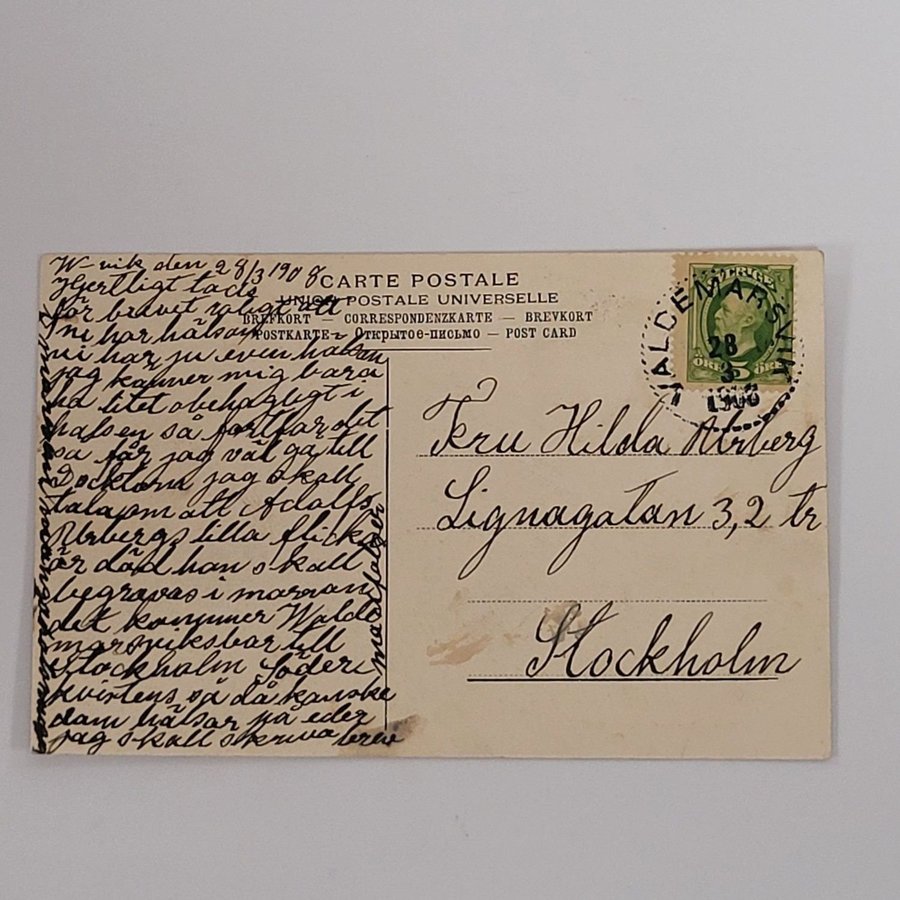 W-vik den 28/3 1908
Hjertligt tack
för brevet roligt att
ni har hälsan
ni har ju även hälsan
jag känner mig bara
litet obehagligt i
halsen så fortfar det
så får jag väl gå till
Docktorn jag skall
tala om att Adolfs
Arbergs lilla flicka
är död han skall
begravas i morran
det kommer Walde
marsviksbor till
Stockholm Söder
så då kanske
dom hälsar på eder
jag skall skriva brev
CARTE POSTALE
UNION POSTALE UNIVERSELLE
BREFKORT — CORRESPONDENZKARTE — BREVKORT
POSTKARTE — Открытое-письмо — POST CARD
SVERIGE
5 ÖRE 5 ÖRE
VALDEMARSVIK
28
3
1908
Fru Hilda Arberg
Lignagatan 3, 2 tr
Stockholm